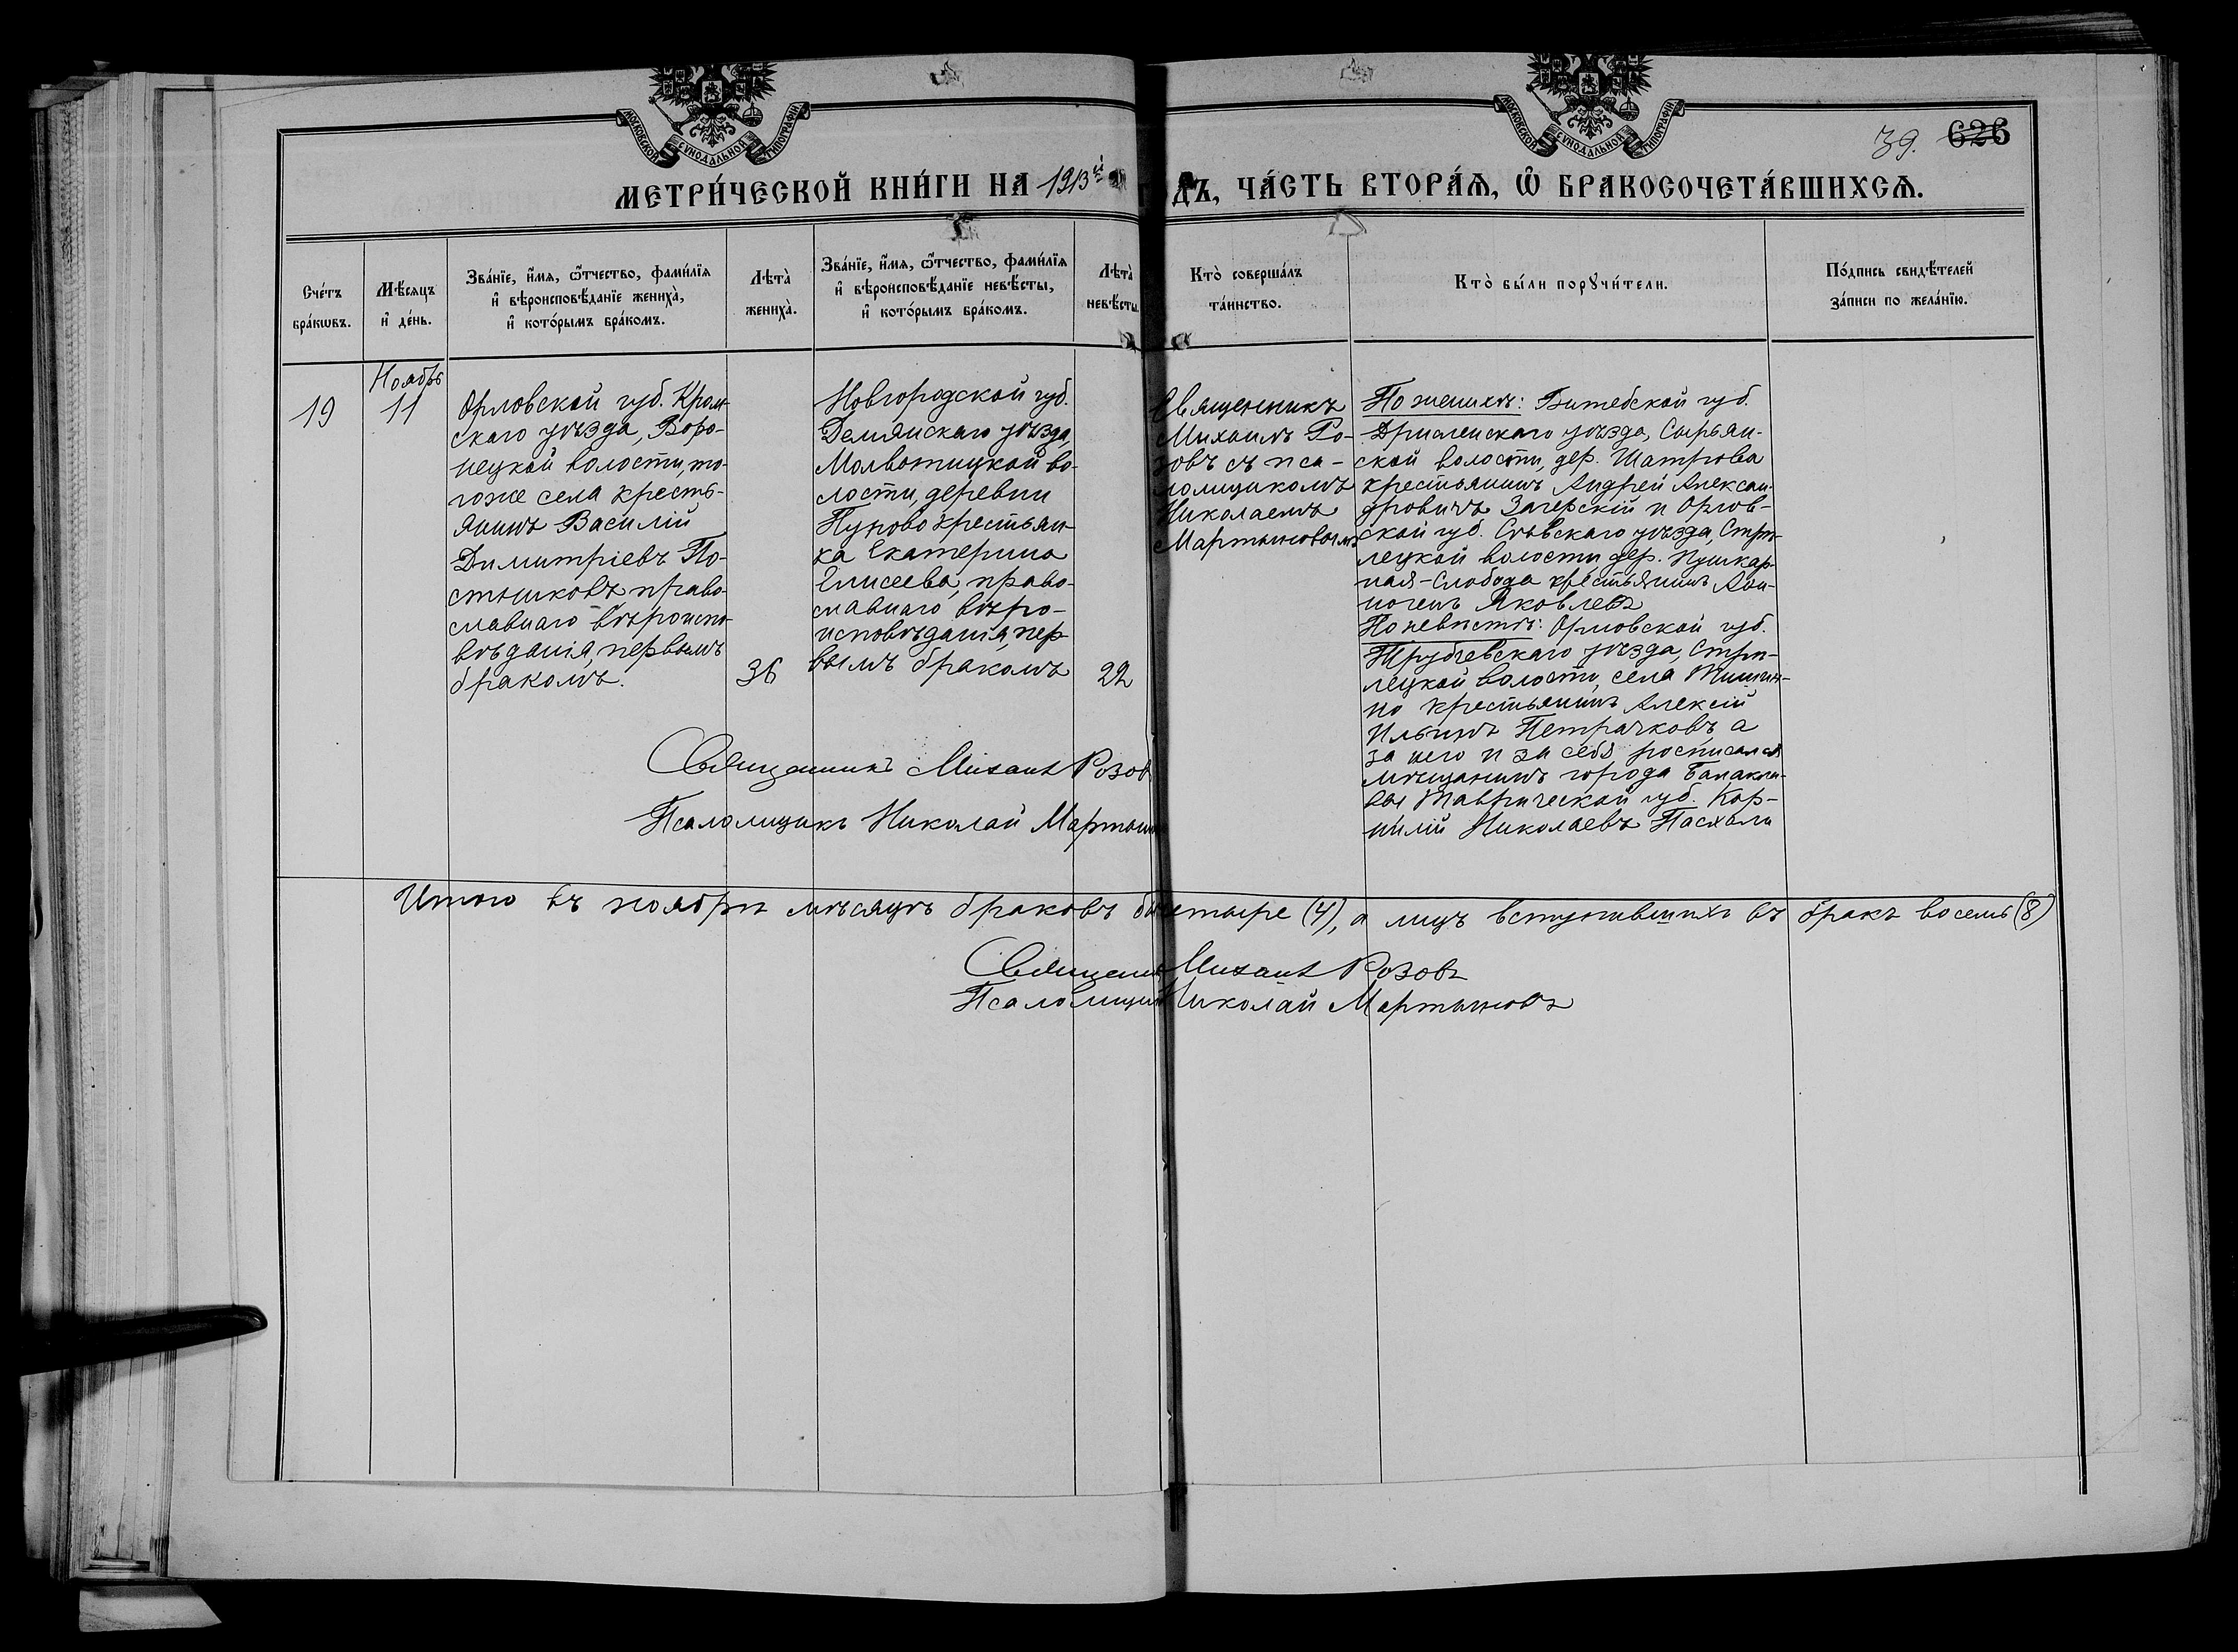 МОСКОВСКОЙ СѴНОДАЛЬНОЙ ТИПОГРАФІИ
МОСКОВСКОЙ СѴНОДАЛЬНОЙ ТИПОГРАФІИ
39. 626
МЕТРИ́ЧЕСКОЙ КНИ́ГИ НА 1913й ДЪ, ЧА́СТЬ ВТОРА́Я, Ѽ БРАКОСОЧЕТА́ВШИХСЯ.
Сче́тъ
бра́кѡвъ.
Мѣ́сяцъ
и҆ де́нь.
Зва́нїе, и҆́мя, ѻ҆́тчество, фами́лїя
и҆ вѣроисповѣ́данїе жениха̀,
и҆ кото́рымъ бра́комъ.
Лѣта̀
жениха̀.
Зва́нїе, и҆́мя, ѻ҆́тчество, фами́лїя
и҆ вѣроисповѣ́данїе невѣ́сты,
и҆ кото́рымъ бра́комъ.
Лѣта̀
невѣ́сты.
Кто̀ соверша́лъ
та́инство.
Кто̀ бы́ли порꙋчи́тели.
По́дпись свидѣ́телей
за́писи по жела́нїю.
19
Ноябрь
11
Орловской губ. Кром-
скаго уѣзда, Воро-
нецкой волости, то-
гоже села кресть-
янинъ Василій
Димитріевъ По-
стниковъ право-
славнаго вѣроиспо-
вѣданія, первымъ
бракомъ.
36
Новгородской губ.
Демянскаго уѣзда,
Молвотицкой во-
лости, деревни
Пуново крестьян-
ка Екатерина
Елисеева, право-
славнаго вѣро-
исповѣданія, пер-
вымъ бракомъ
22
Священникъ
Михаилъ Ро-
зовъ съ пса-
ломщикомъ
Николаемъ
Мартыновымъ
По женихѣ: Витебской губ.
Дрисенскаго уѣзда, Сарьян-
ской волости, дер. Шатрова
крестьянинъ Андрей Алексан-
дровичъ Загерскій и Орлов-
ской губ. Сѣвскаго уѣзда, Стрѣ-
лецкой волости дер. Пушкар-
ная-Слобода крестьянинъ
Яковлевъ
По невѣстѣ: Орловской губ.
Трубчевскаго уѣзда, Стрѣ-
лецкой волости, села
но крестьянинъ Алексій
Ильинъ Петрачковъ, а
за него и за себя росписался
мѣщанинъ города Балакла-
вы Таврической губ. Кор-
нилій Николаевъ Пасхали
Священникъ Михаилъ Розовъ
Псаломщикъ Николай Мартыновъ
Итого въ ноябрѣ мѣсяцѣ браковъ четыре (4), а лицъ вступившихъ въ бракъ восемь (8)
Священникъ Михаилъ Розовъ
Псаломщикъ Николай Мартыновъ